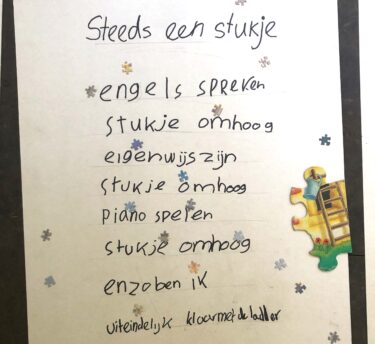 Steeds een stukje
engels spreken
stukje omhoog
eigenwijs zijn
stukje omhoog
piano spelen
stukje omhoog
enzo ben ik
uiteindelijk klaar met de ladder